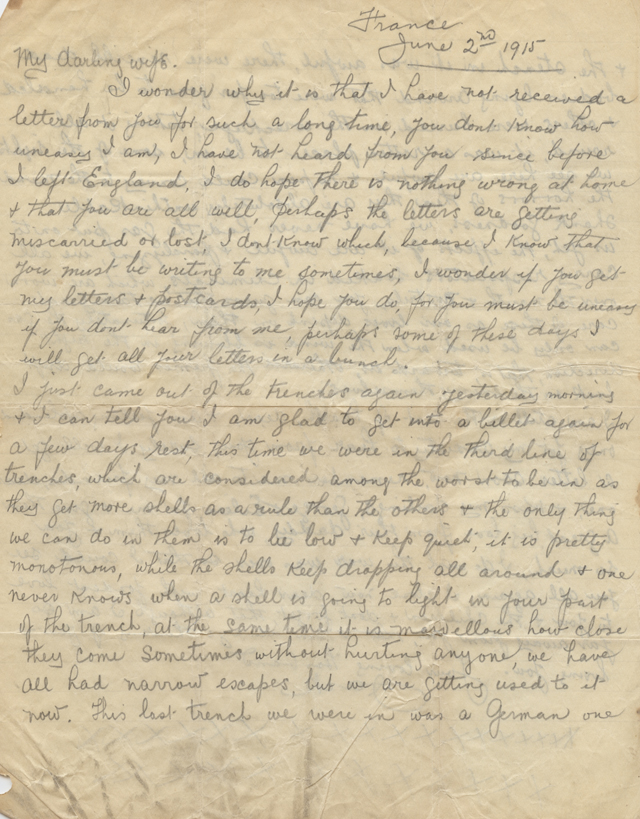 France
June 2nd 1915
My darling wife.
I wonder why it is that I have not received a
letter from you for such a long time, you dont know how
uneasy I am, I have not heard from you since before
I left England, I do hope there is nothing wrong at home
& that you are all well, perhaps the letters are getting
miscarried or lost, I dont know which, because I know that
you must be writing to me sometimes, I wonder if you get
my letters & postcards, I hope you do, for you must be uneasy
if you dont hear from me, perhaps some of these days I
will get all your letters in a bunch.
I just came out of the trenches again yesterday morning
& I can tell you I am glad to get into a billet again for
a few days rest, this time we were in the third line of
trenches, which are considered among the worst to be in as
they get more shells as a rule than the others & the only thing
we can do in them is to lie low & keep quiet, it is pretty
monotonous, while the shells keep dropping all around & one
never knows when a shell is going to light in your part
of the trench, at the same time it is marvellous how close
they come sometimes without hurting anyone, we have
all had narrow escapes, but we are getting used to it
now. This last trench we were in was a German one